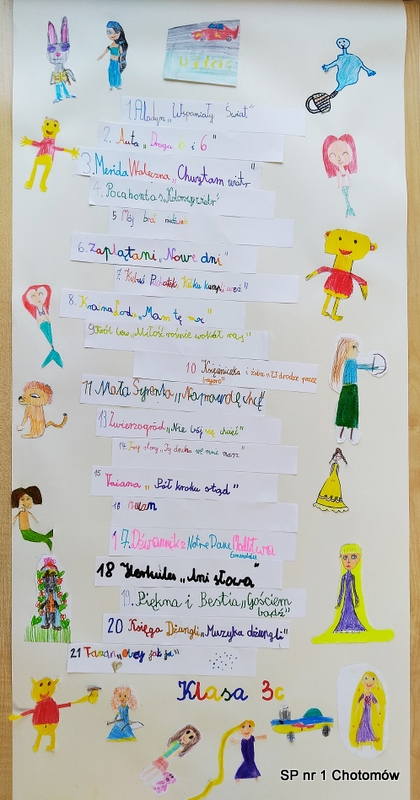 1. Aladyn „Wspaniały Świat"
2. Auta „Droga 6 i 6"
3. Merida Waleczna „Chwytam wiatr"
4. Pocahontas „Kolorowy wiatr"
5 Mój brat niedźwiedź
6. Zaplątani „Nowe dni"
7. Kubuś Puchatek
8. Kraina Lodu „Mam tę moc"
9 Król Lew „Miłość rośnie wokół nas"
10 Księżniczka i żaba „W drodze przez bajoro"
11 Mała Syrenka „Naprawdę chcę"
13 Zwierzogród „Nie bój się chcieć"
14. Toy story „Ty druha we mnie masz"
15 Vaiana „Pół kroku stąd"
16 Mulan
17. Dzwonnik z Notre Dame Modlitwa Esmeraldy
18 Herkules „Ani słowa"
19. Piękna i Bestia „Gościem bądź"
20 Księga Dżungli „Muzyka dżungli"
21 Tarzan
Klasa 3c
SP nr 1 Chotomów